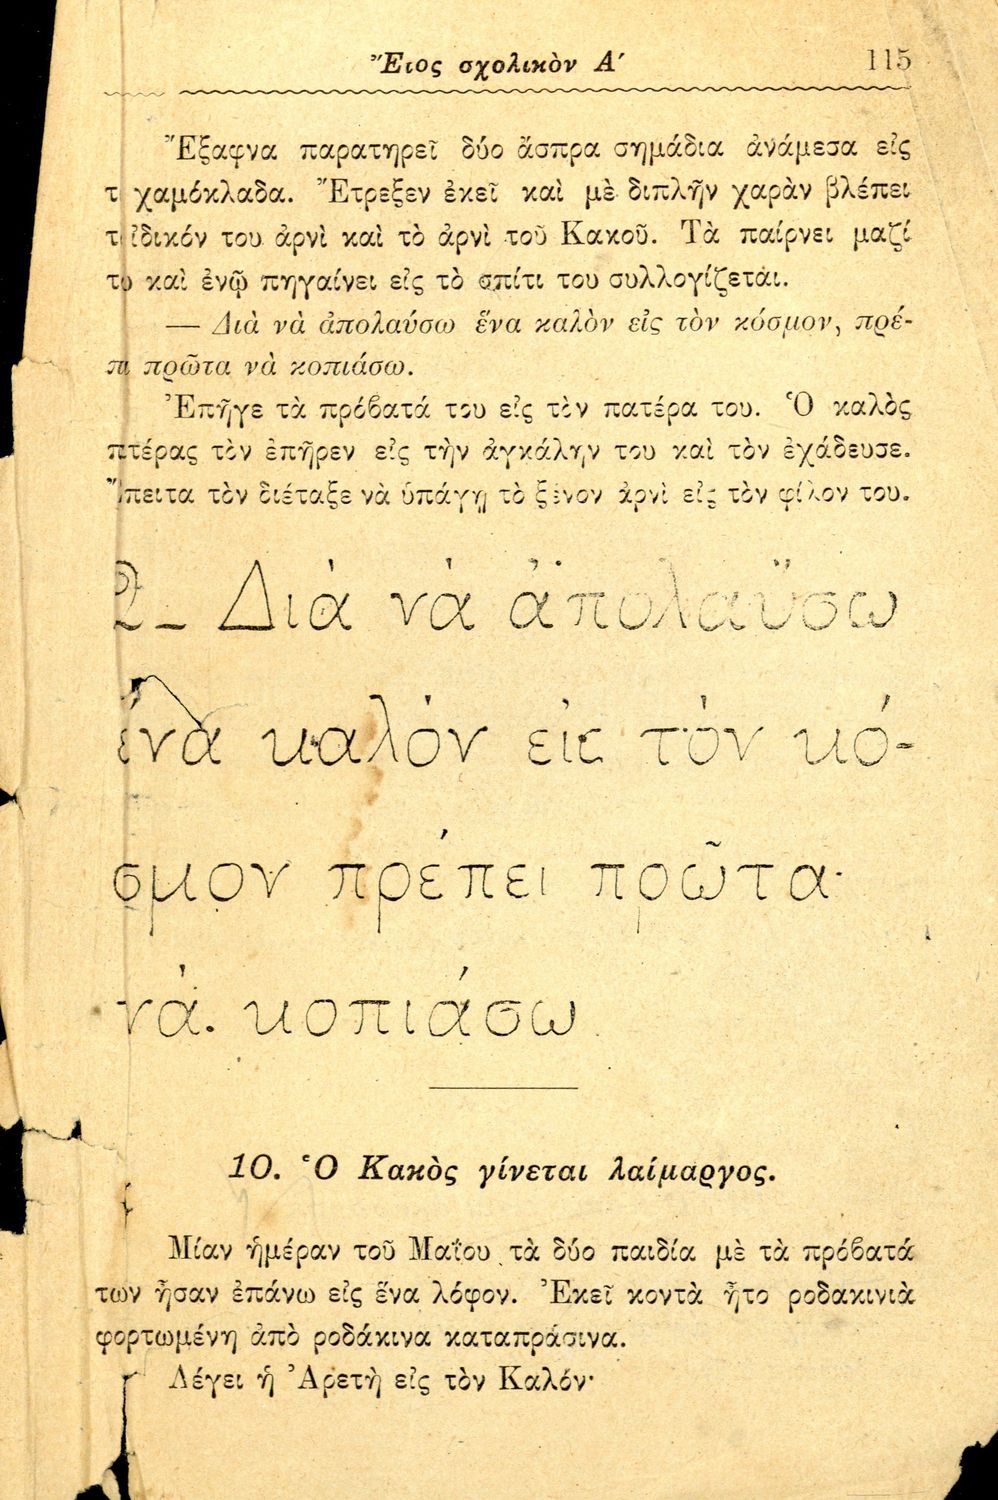 Ἔτος σχολικὸν Α΄ 115
Ἔξαφνα παρατηρεῖ δύο ἄσπρα σημάδια ἀνάμεσα εἰς
τ χαμόκλαδα. Ἔτρεξεν ἐκεῖ καὶ μὲ διπλῆν χαρὰν βλέπει
τ ἰδικόν του ἀρνὶ καὶ τὸ ἀρνὶ τοῦ Κακοῦ. Τὰ παίρνει μαζί
το καὶ ἐνῷ πηγαίνει εἰς τὸ σπίτι του συλλογίζεται.
— Διὰ νὰ ἀπολαύσω ἕνα καλὸν εἰς τὸν κόσμον, πρέ-
πι πρῶτα νὰ κοπιάσω.
Ἐπῆγε τὰ πρόβατά του εἰς τὸν πατέρα του. Ὁ καλὸς
πτέρας τὸν ἐπῆρεν εἰς τὴν ἀγκάλην του καὶ τὸν ἐχάδευσε.
Ἔπειτα τὸν διέταξε νὰ ὑπάγῃ τὸ ξένον ἀρνὶ εἰς τὸν φίλον του.
2_ Διὰ νὰ ἀπολαύσω
ἕνα καλόν εἰς τόν κό-
σμον πρέπει πρῶτα
νά κοπιάσω
10. Ὁ Κακὸς γίνεται λαίμαργος.
Μίαν ἡμέραν τοῦ Μαΐου τὰ δύο παιδία μὲ τὰ πρόβατά
των ἦσαν ἐπάνω εἰς ἕνα λόφον. Ἐκεῖ κοντὰ ἦτο ροδακινιὰ
φορτωμένη ἀπὸ ροδάκινα καταπράσινα.
Λέγει ἡ Ἀρετὴ εἰς τὸν Καλόν·